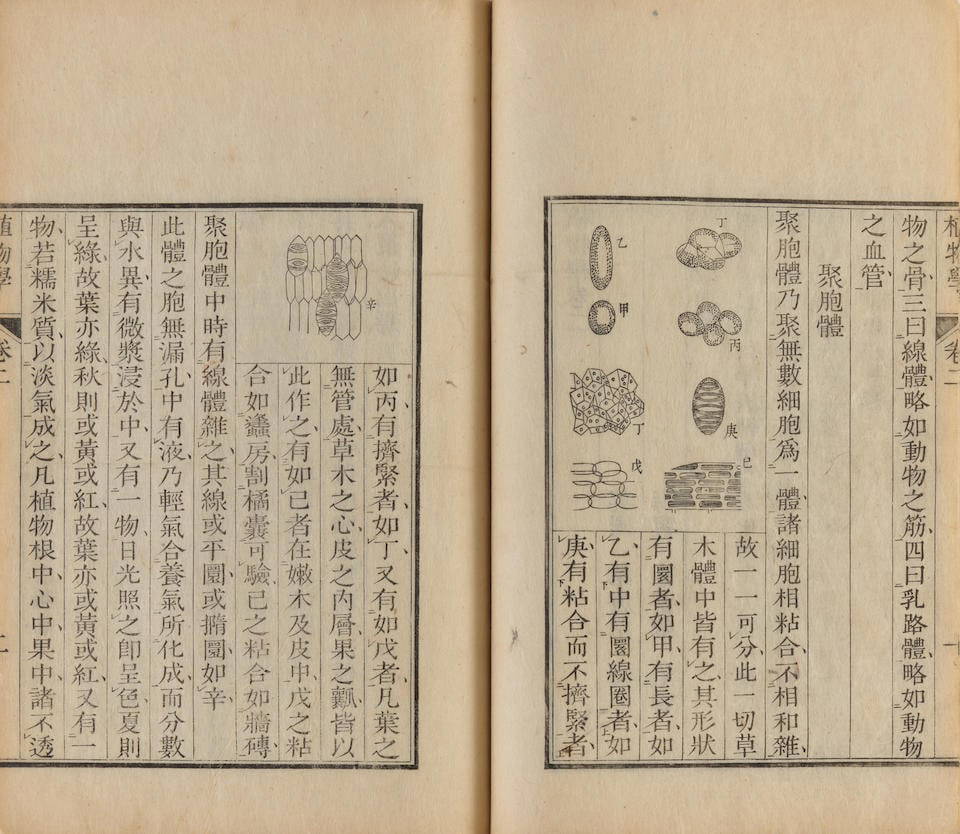 植物學 卷二 一
物之骨三曰線體略如動物之筋四曰乳路體略如動物
之血管
聚胞體
聚胞體乃聚無數細胞爲一體諸細胞相粘合不相和雜
丁
丙
庚
巳
乙
甲
丁
戊
故一一可分此一切草
木體中皆有之其形狀
有圜者如甲有長者如
乙有中有圜線圈者如
庚有粘合而不擠緊者
辛
如丙有擠緊者如丁又有如戊者凡葉之
無管處草木之心皮之內層果之瓤皆以
此作之有如巳者在嫩木及皮中戊之粘
合如蠭房割橘囊可驗巳之粘合如牆磚
聚胞體中時有線體雜之其線或平圜或撱圜如辛
此體之胞無漏孔中有液乃輕氣合養氣所化成而分數
與水異有微漿浸於中又有一物日光照之卽呈色夏則
呈綠故葉亦綠秋則或黃或紅故葉亦或黃或紅又有一
物若糯米質以淡氣成之凡植物根中心中果中諸不透
植物學 卷二 二